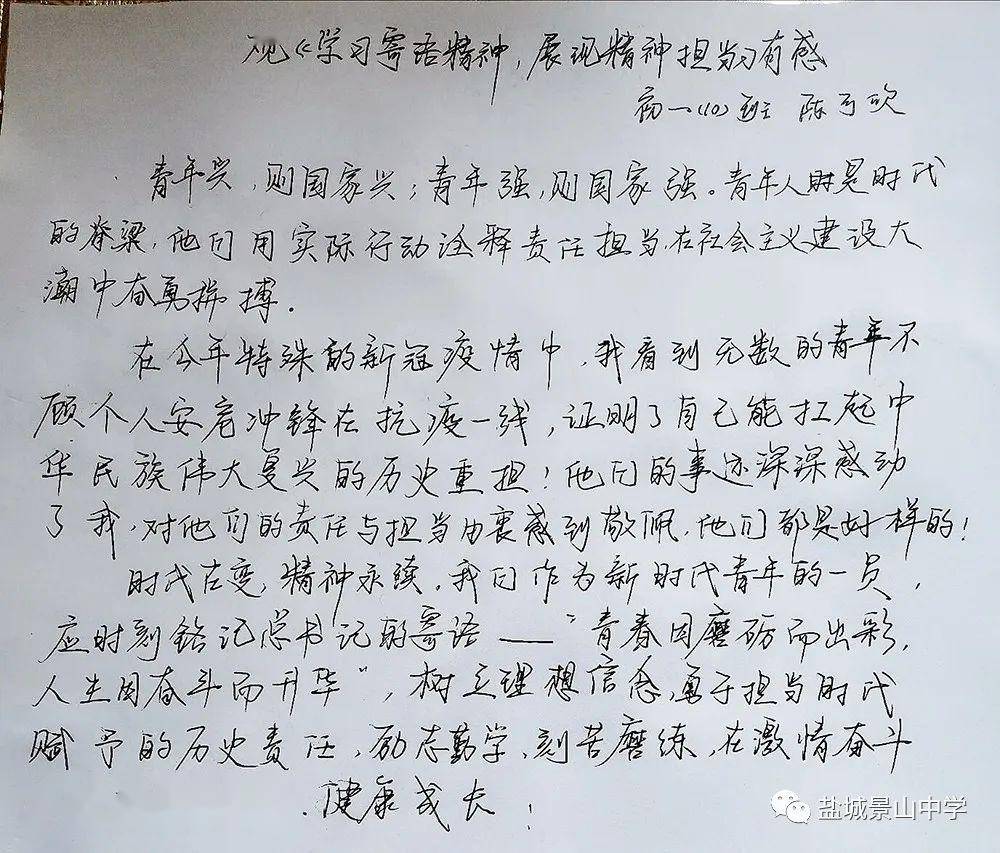 观《学习寄语精神,展现精神担当》有感
初一(10)班 陈可欣
青年兴,则国家兴;青年强,则国家强。青年人时是时代
的脊梁,他们用实际行动诠释责任担当,在社会主义建设大
潮中奋勇拼搏.
在今年特殊的新冠疫情中,我看到无数的青年不
顾个人安危冲锋在抗疫一线,证明了自己能扛起中
华民族伟大复兴的历史重担!他们的事迹深深感动
了我,对他们的责任与担当由衷感到敬佩,他们都是好样的!
时代在变,精神永续,我们作为新时代青年的一员,
应时刻铭记总书记的寄语——“青春因磨砺而出彩,
人生因奋斗而升华”,树立理想信念,勇于担当时代
赋予的历史责任,励志勤学,刻苦磨练,在激情奋斗
健康成长!
盐城景山中学